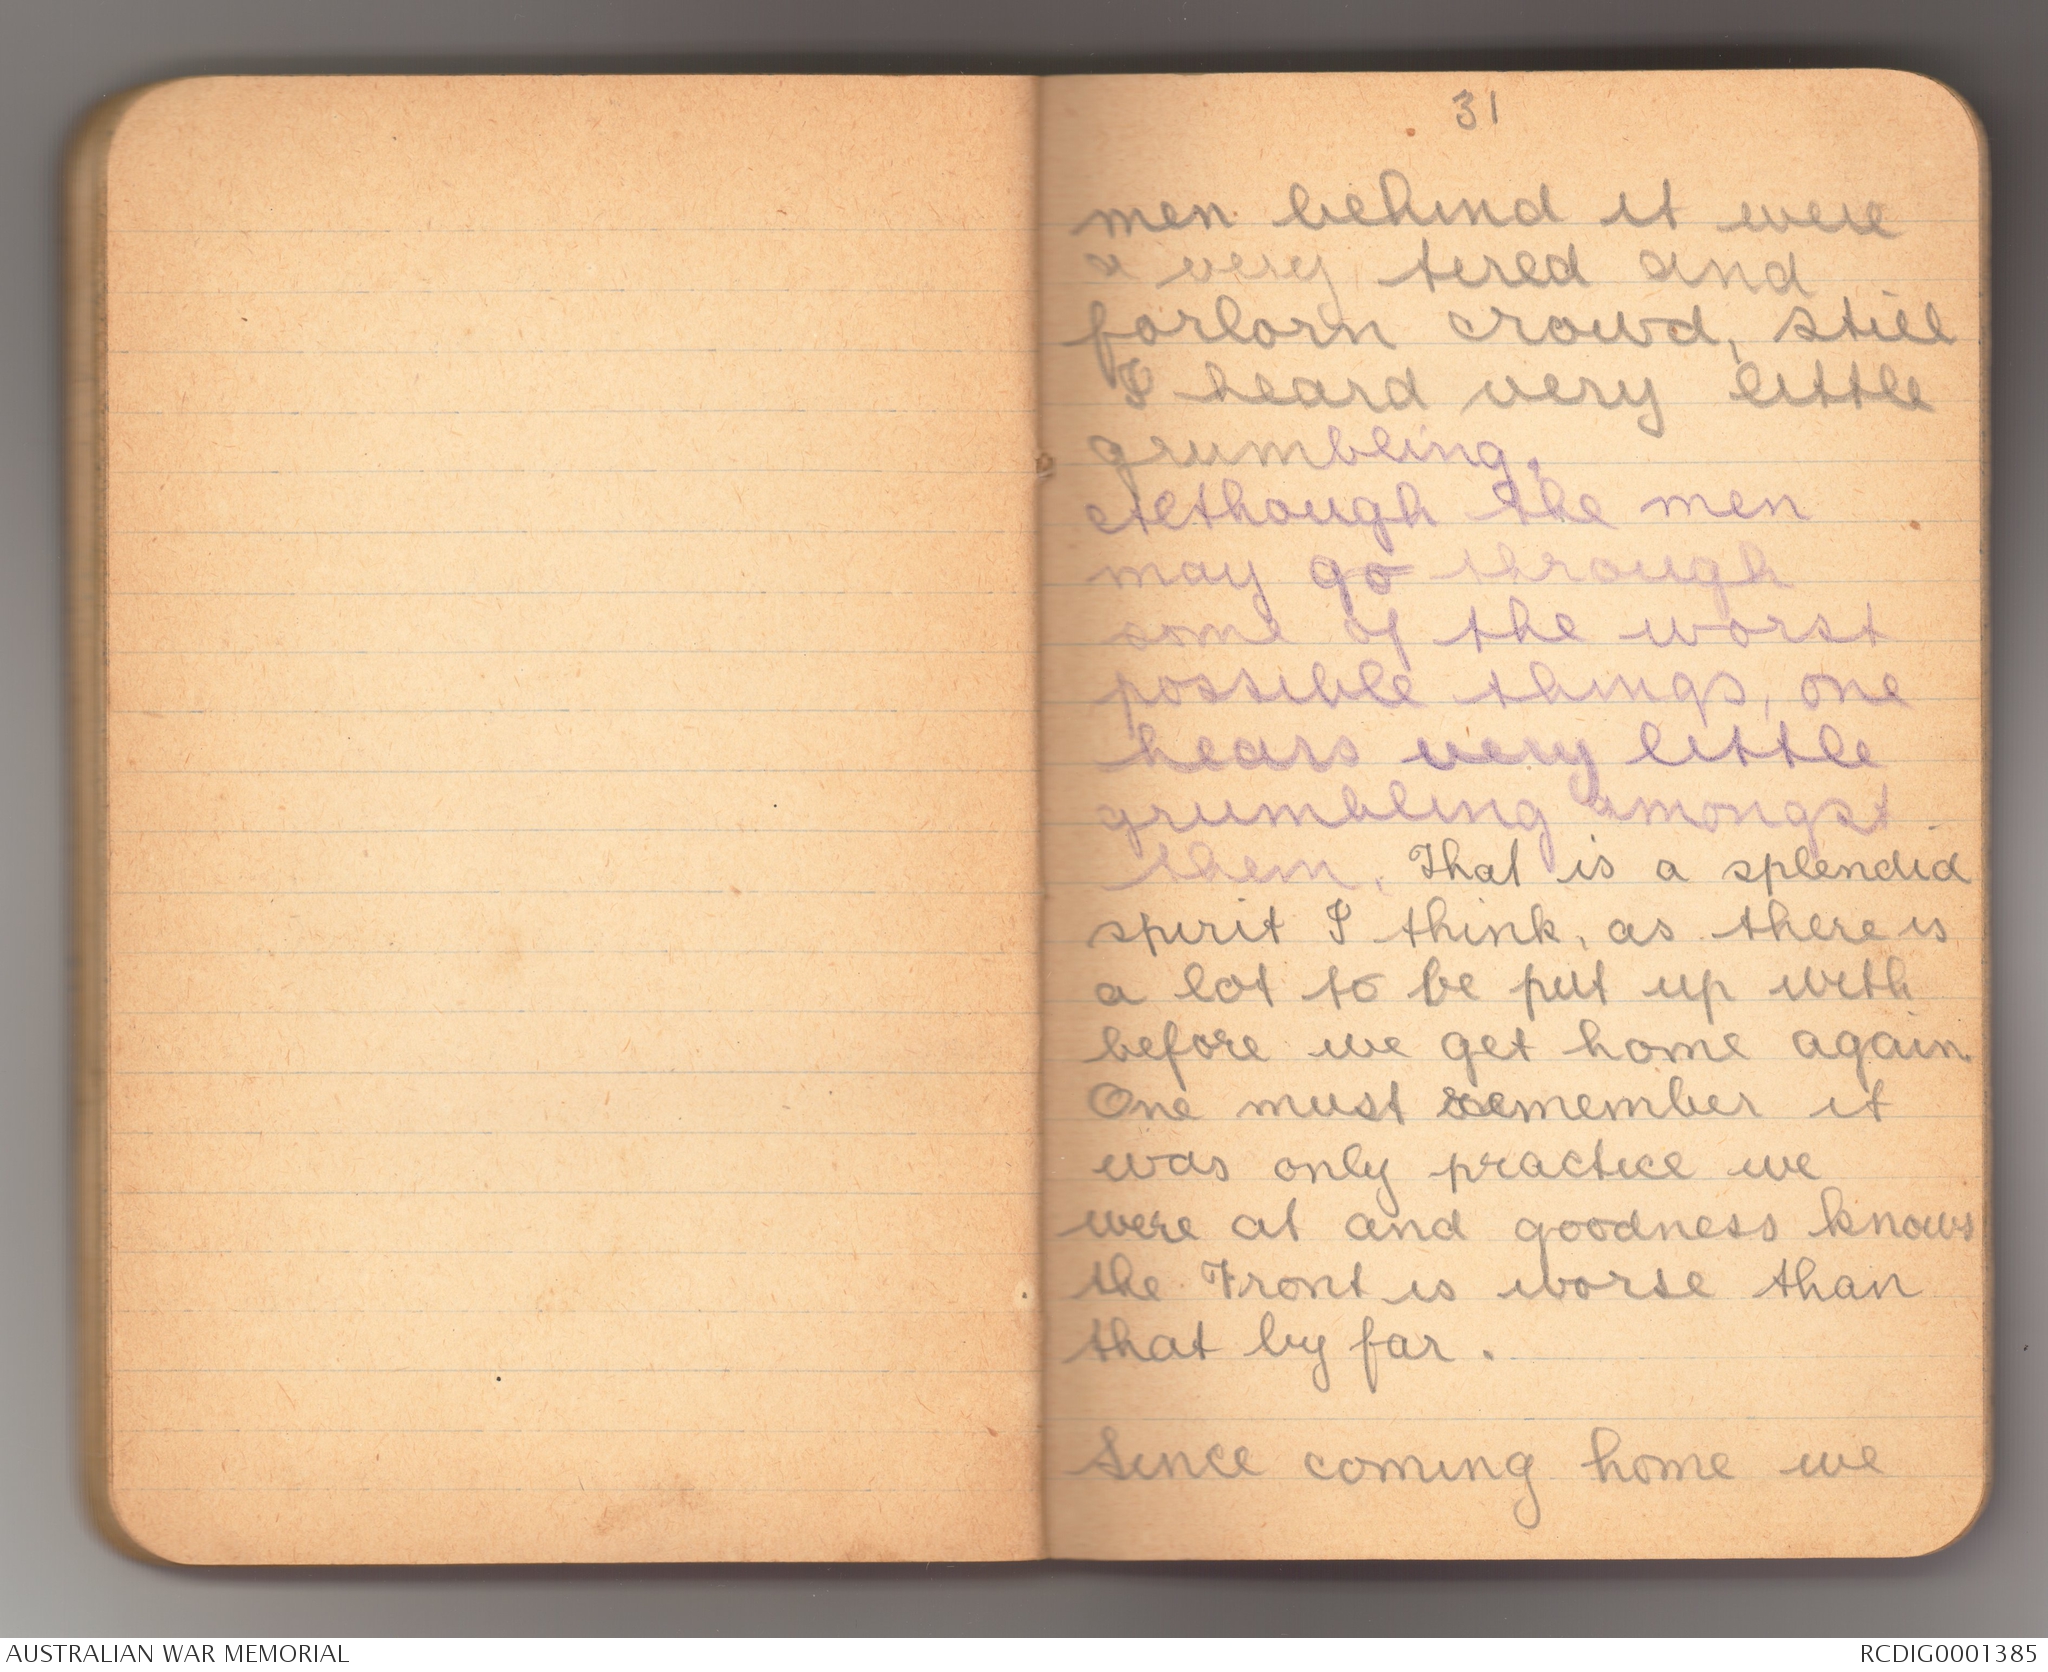 31
men behind it were
a very tired and
forlorn crowd, still
I heard very little
grumbling.
Although the men
may go through
some of the worst
possible things, one
hears very little
grumbling amongst
them. That is a splendid
spirit I think, as there is
a lot to be put up with
before we get home again.
One must remember it
was only practice we
were at and goodness knows
the Front is worse than
that by far.
Since coming home we
AUSTRALIAN WAR MEMORIAL
RCDIG0001385